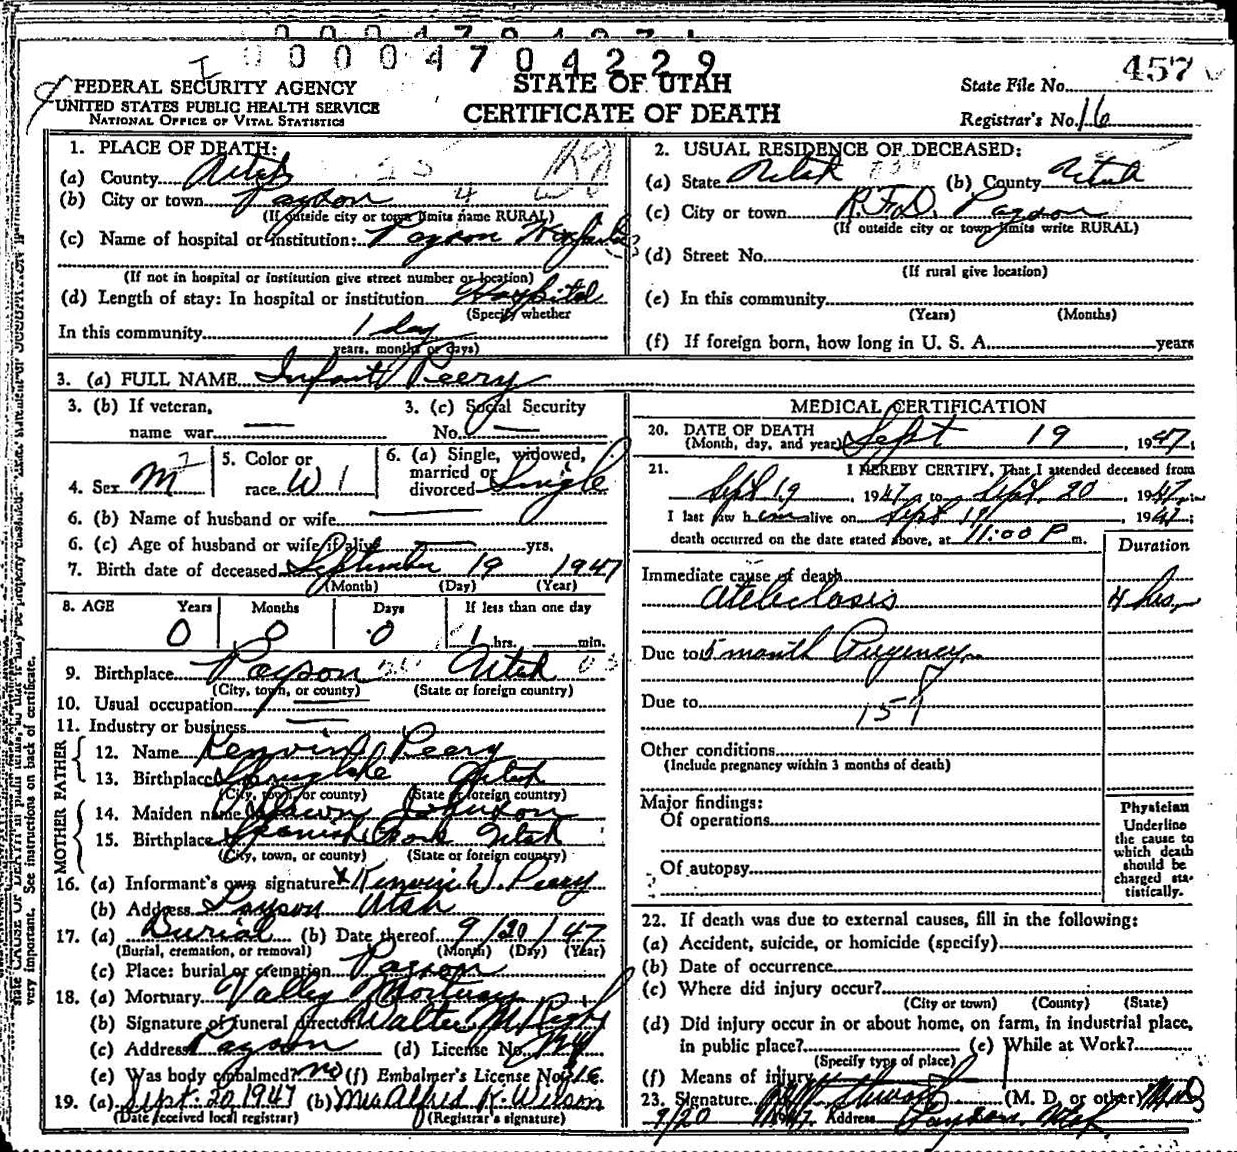 0 0 0 0 4 7 0 4 2 2 9
STATE OF UTAH
CERTIFICATE OF DEATH
FEDERAL SECURITY AGENCY
UNITED STATES PUBLIC HEALTH SERVICE
NATIONAL OFFICE OF VITAL STATISTICS
State File No. 457
Registrar's No. 16
1. PLACE OF DEATH:
(a) County Utah
(b) City or town Payson
(If outside city or town limits name RURAL)
(c) Name of hospital or institution: Payson
(If not in hospital or institution give street number or location)
(d) Length of stay: In hospital or institution Hospital
(Specify whether
In this community 1 day
years, months or days)
2. USUAL RESIDENCE OF DECEASED:
(a) State Utah (b) County Utah
(c) City or town R.F.D. Payson
(If outside city or town limits write RURAL)
(d) Street No.
(If rural give location)
(e) In this community
(Years) (Months)
(f) If foreign born, how long in U. S. A. years
3. (a) FULL NAME Infant Peery
3. (b) If veteran, name war —
3. (c) Social Security No. —
4. Sex M
5. Color or race W 1
6. (a) Single, widowed, married or divorced Single
6. (b) Name of husband or wife —
6. (c) Age of husband or wife if alive — yrs.
7. Birth date of deceased September 19 1947
(Month) (Day) (Year)
8. AGE Years Months Days If less than one day
0 0 0 1 hrs. min.
9. Birthplace Payson Utah
(City, town, or county) (State or foreign country)
10. Usual occupation —
11. Industry or business —
FATHER
12. Name Kenvin Peery
13. Birthplace Utah
(City, town, or county) (State or foreign country)
MOTHER
14. Maiden name Dawn Johnson
15. Birthplace Spanish Fork Utah
(City, town, or county) (State or foreign country)
16. (a) Informant's own signature x Kenvin W. Peery
(b) Address Payson Utah
17. (a) Burial (b) Date thereof 9/20/47
(Burial, cremation, or removal) (Month) (Day) (Year)
(c) Place: burial or cremation Payson
18. (a) Mortuary Valley Mortuary
(b) Signature of funeral director Walter M
(c) Address Payson (d) License No.
(e) Was body embalmed? no (f) Embalmer's License No. 316
19. (a) Sept. 20 1947 (b) Mrs Alfred K. Wilson
(Date received local registrar) (Registrar's signature)
MEDICAL CERTIFICATION
20. DATE OF DEATH
(Month, day, and year) Sept 19, 1947;
21. I HEREBY CERTIFY, That I attended deceased from
Sept 19, 1947, to Sept. 20 1947;
I last saw him alive on Sept 19, 1947;
death occurred on the date stated above, at 11:00 P m.
Duration
Immediate cause of death
Atelectasis 4 hrs.
Due to 5 month
Due to
159
Other conditions
(Include pregnancy within 3 months of death)
Major findings:
Of operations
Of autopsy
Physician
Underline
the cause to
which death
should be
charged sta-
tistically.
22. If death was due to external causes, fill in the following:
(a) Accident, suicide, or homicide (specify)
(b) Date of occurrence
(c) Where did injury occur?
(City or town) (County) (State)
(d) Did injury occur in or about home, on farm, in industrial place,
in public place? (e) While at Work?
(Specify type of place)
(f) Means of injury
23. Signature Stewart (M. D. or other) M.D.
9/20 1947 Address Payson, Utah
very important. See instructions on back of certificate.